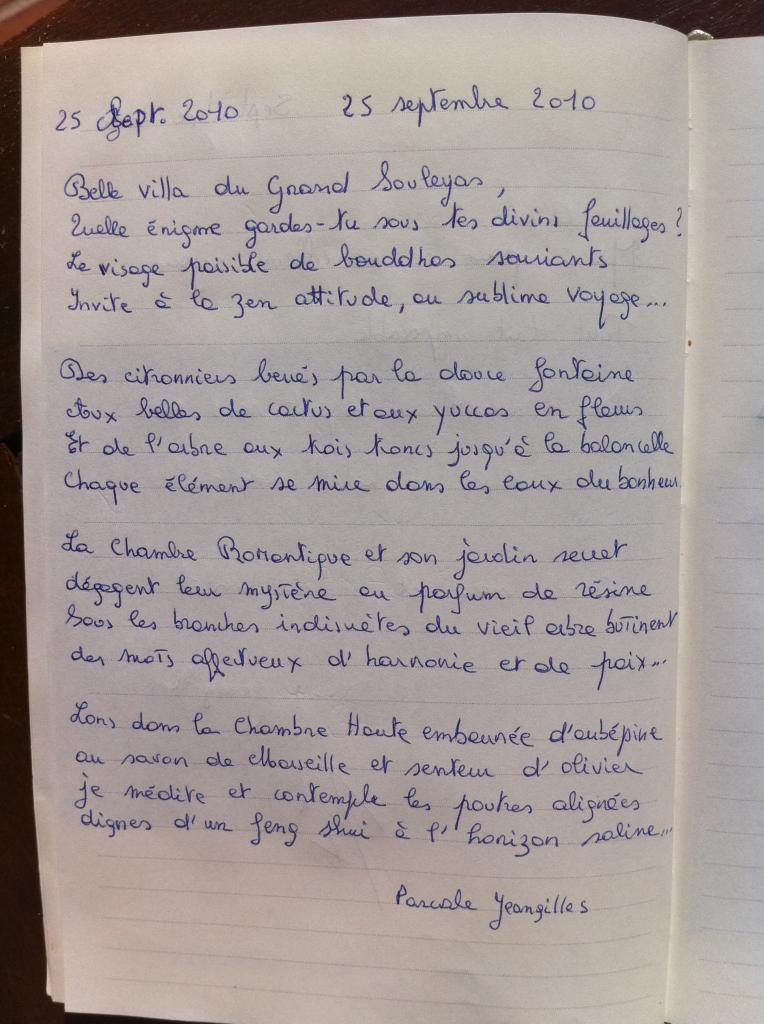 25 Sept. 2010 25 septembre 2010
Belle villa du Grand Souleyas,
Quelle énigme gardes-tu sous tes divins feuillages ?
Le visage paisible de bouddhas souriants
Invite à la zen attitude, au sublime voyage...
Des citronniers bercés par la douce fontaine
Aux belles de cactus et aux yuccas en fleurs
Et de l'arbre aux trois troncs jusqu'à la balancelle
Chaque élément se mire dans les eaux du bonheur.
La Chambre Romantique et son jardin secret
dégagent leur mystère au parfum de résine
Sous les branches indiscrètes du vieil arbre butinent
des mots affectueux d'harmonie et de paix...
Lors dans la Chambre Haute embaumée d'aubépine
au savon de Marseille et senteur d'olivier
je médite et contemple les poutres alignées
dignes d'un feng shui à l'horizon saline...
Pascale Jeangilles